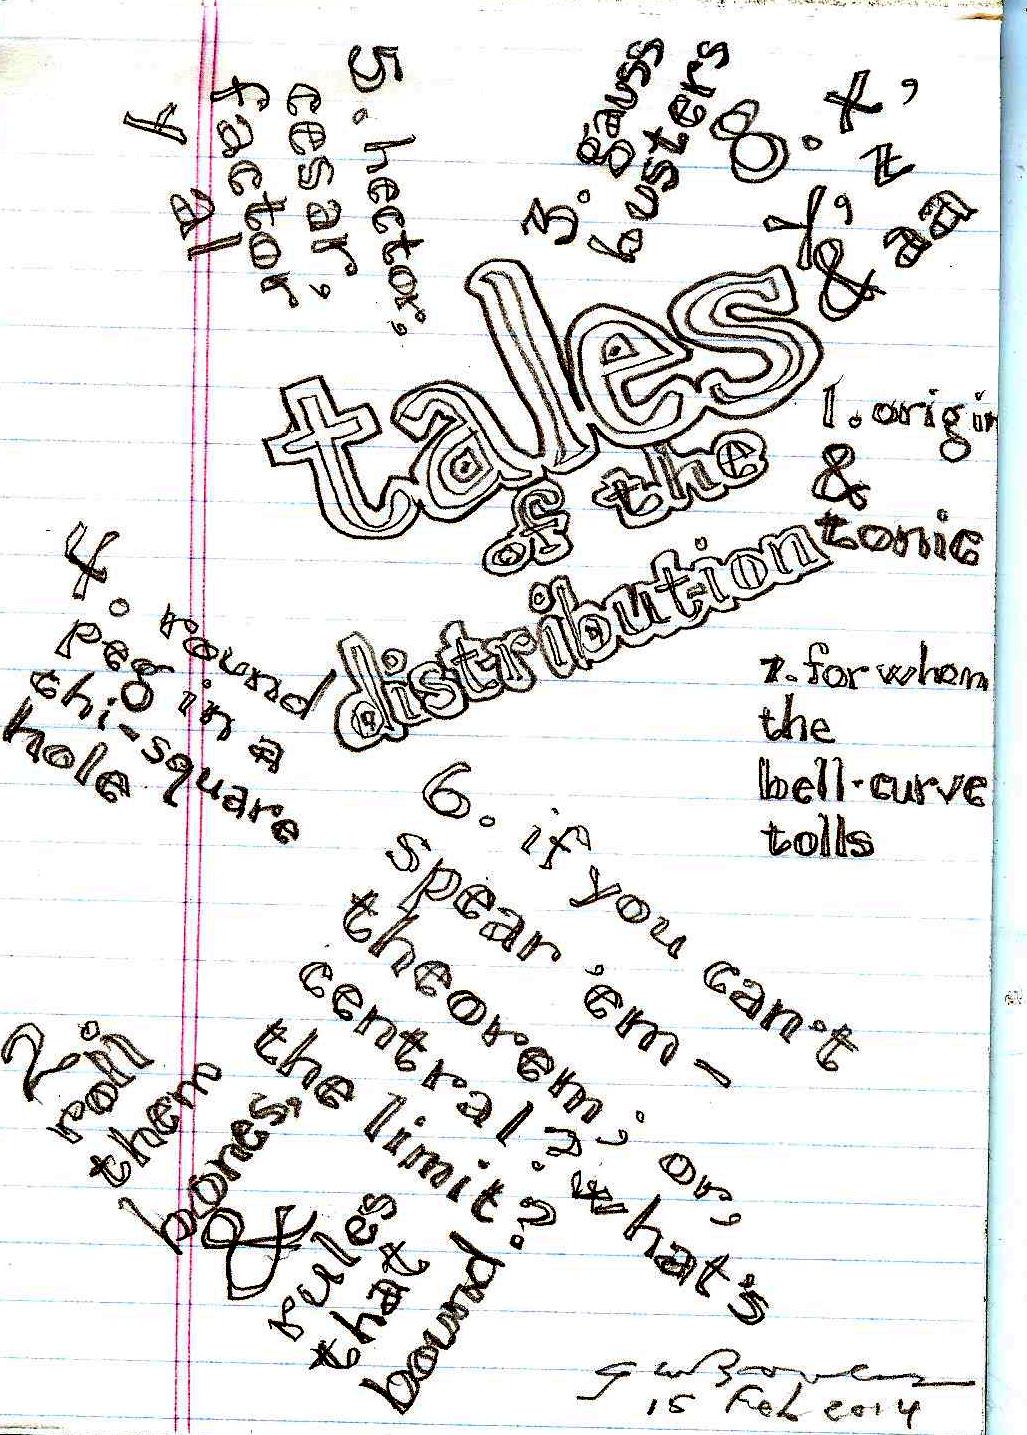 tales
of the
distribution
1. origin
&
tonic
2. roll
them
bones,
&
rules
that
bound
3. gauss
busters
4. round
peg in a
chi-square
hole
5. hector,
cesar,
factor,
y al
6. if you can't
spear 'em –
theorem; or,
central? what's
the limit?
7. for whom
the
bell-curve
tolls
8. x,
y, z
& aa
15 Feb 2014